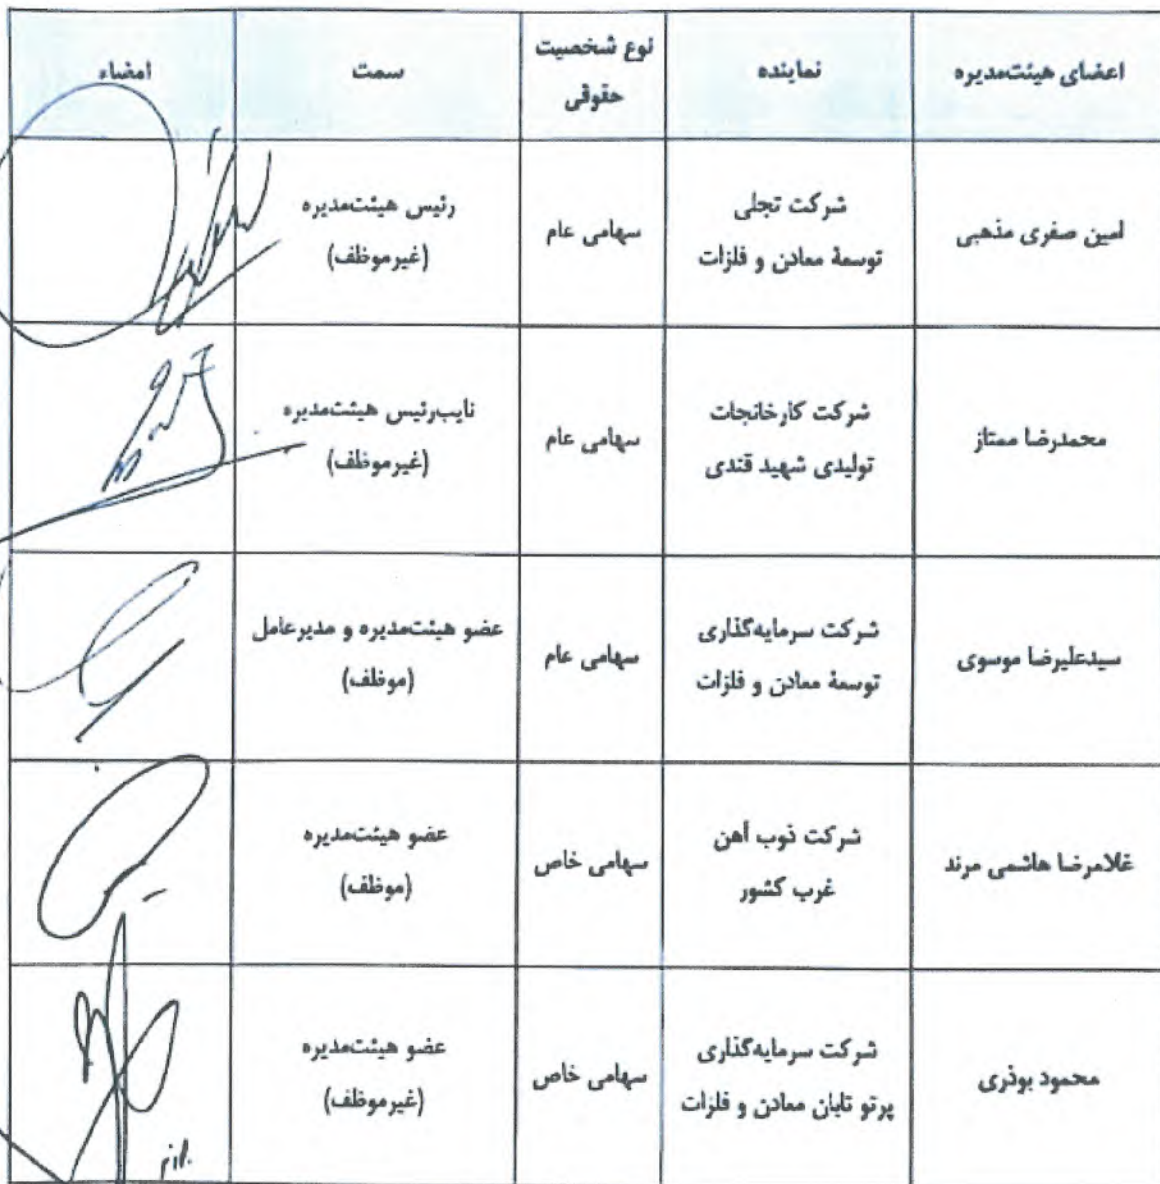 اعضای هیئت‌مدیره
نماینده
نوع شخصیت
حقوقی
سمت
امضاء
امین صفری مذهبی
شرکت تجلی
توسعهٔ معادن و فلزات
سهامی عام
رئیس هیئت‌مدیره
(غیرموظف)
محمدرضا ممتاز
شرکت کارخانجات
تولیدی شهید قندی
سهامی عام
نایب‌رئیس هیئت‌مدیره
(غیرموظف)
سیدعلیرضا موسوی
شرکت سرمایه‌گذاری
توسعهٔ معادن و فلزات
سهامی عام
عضو هیئت‌مدیره و مدیرعامل
(موظف)
غلامرضا هاشمی مرند
شرکت ذوب آهن
غرب کشور
سهامی خاص
عضو هیئت‌مدیره
(موظف)
محمود بوذری
شرکت سرمایه‌گذاری
پرتو تابان معادن و فلزات
سهامی خاص
عضو هیئت‌مدیره
(غیرموظف)